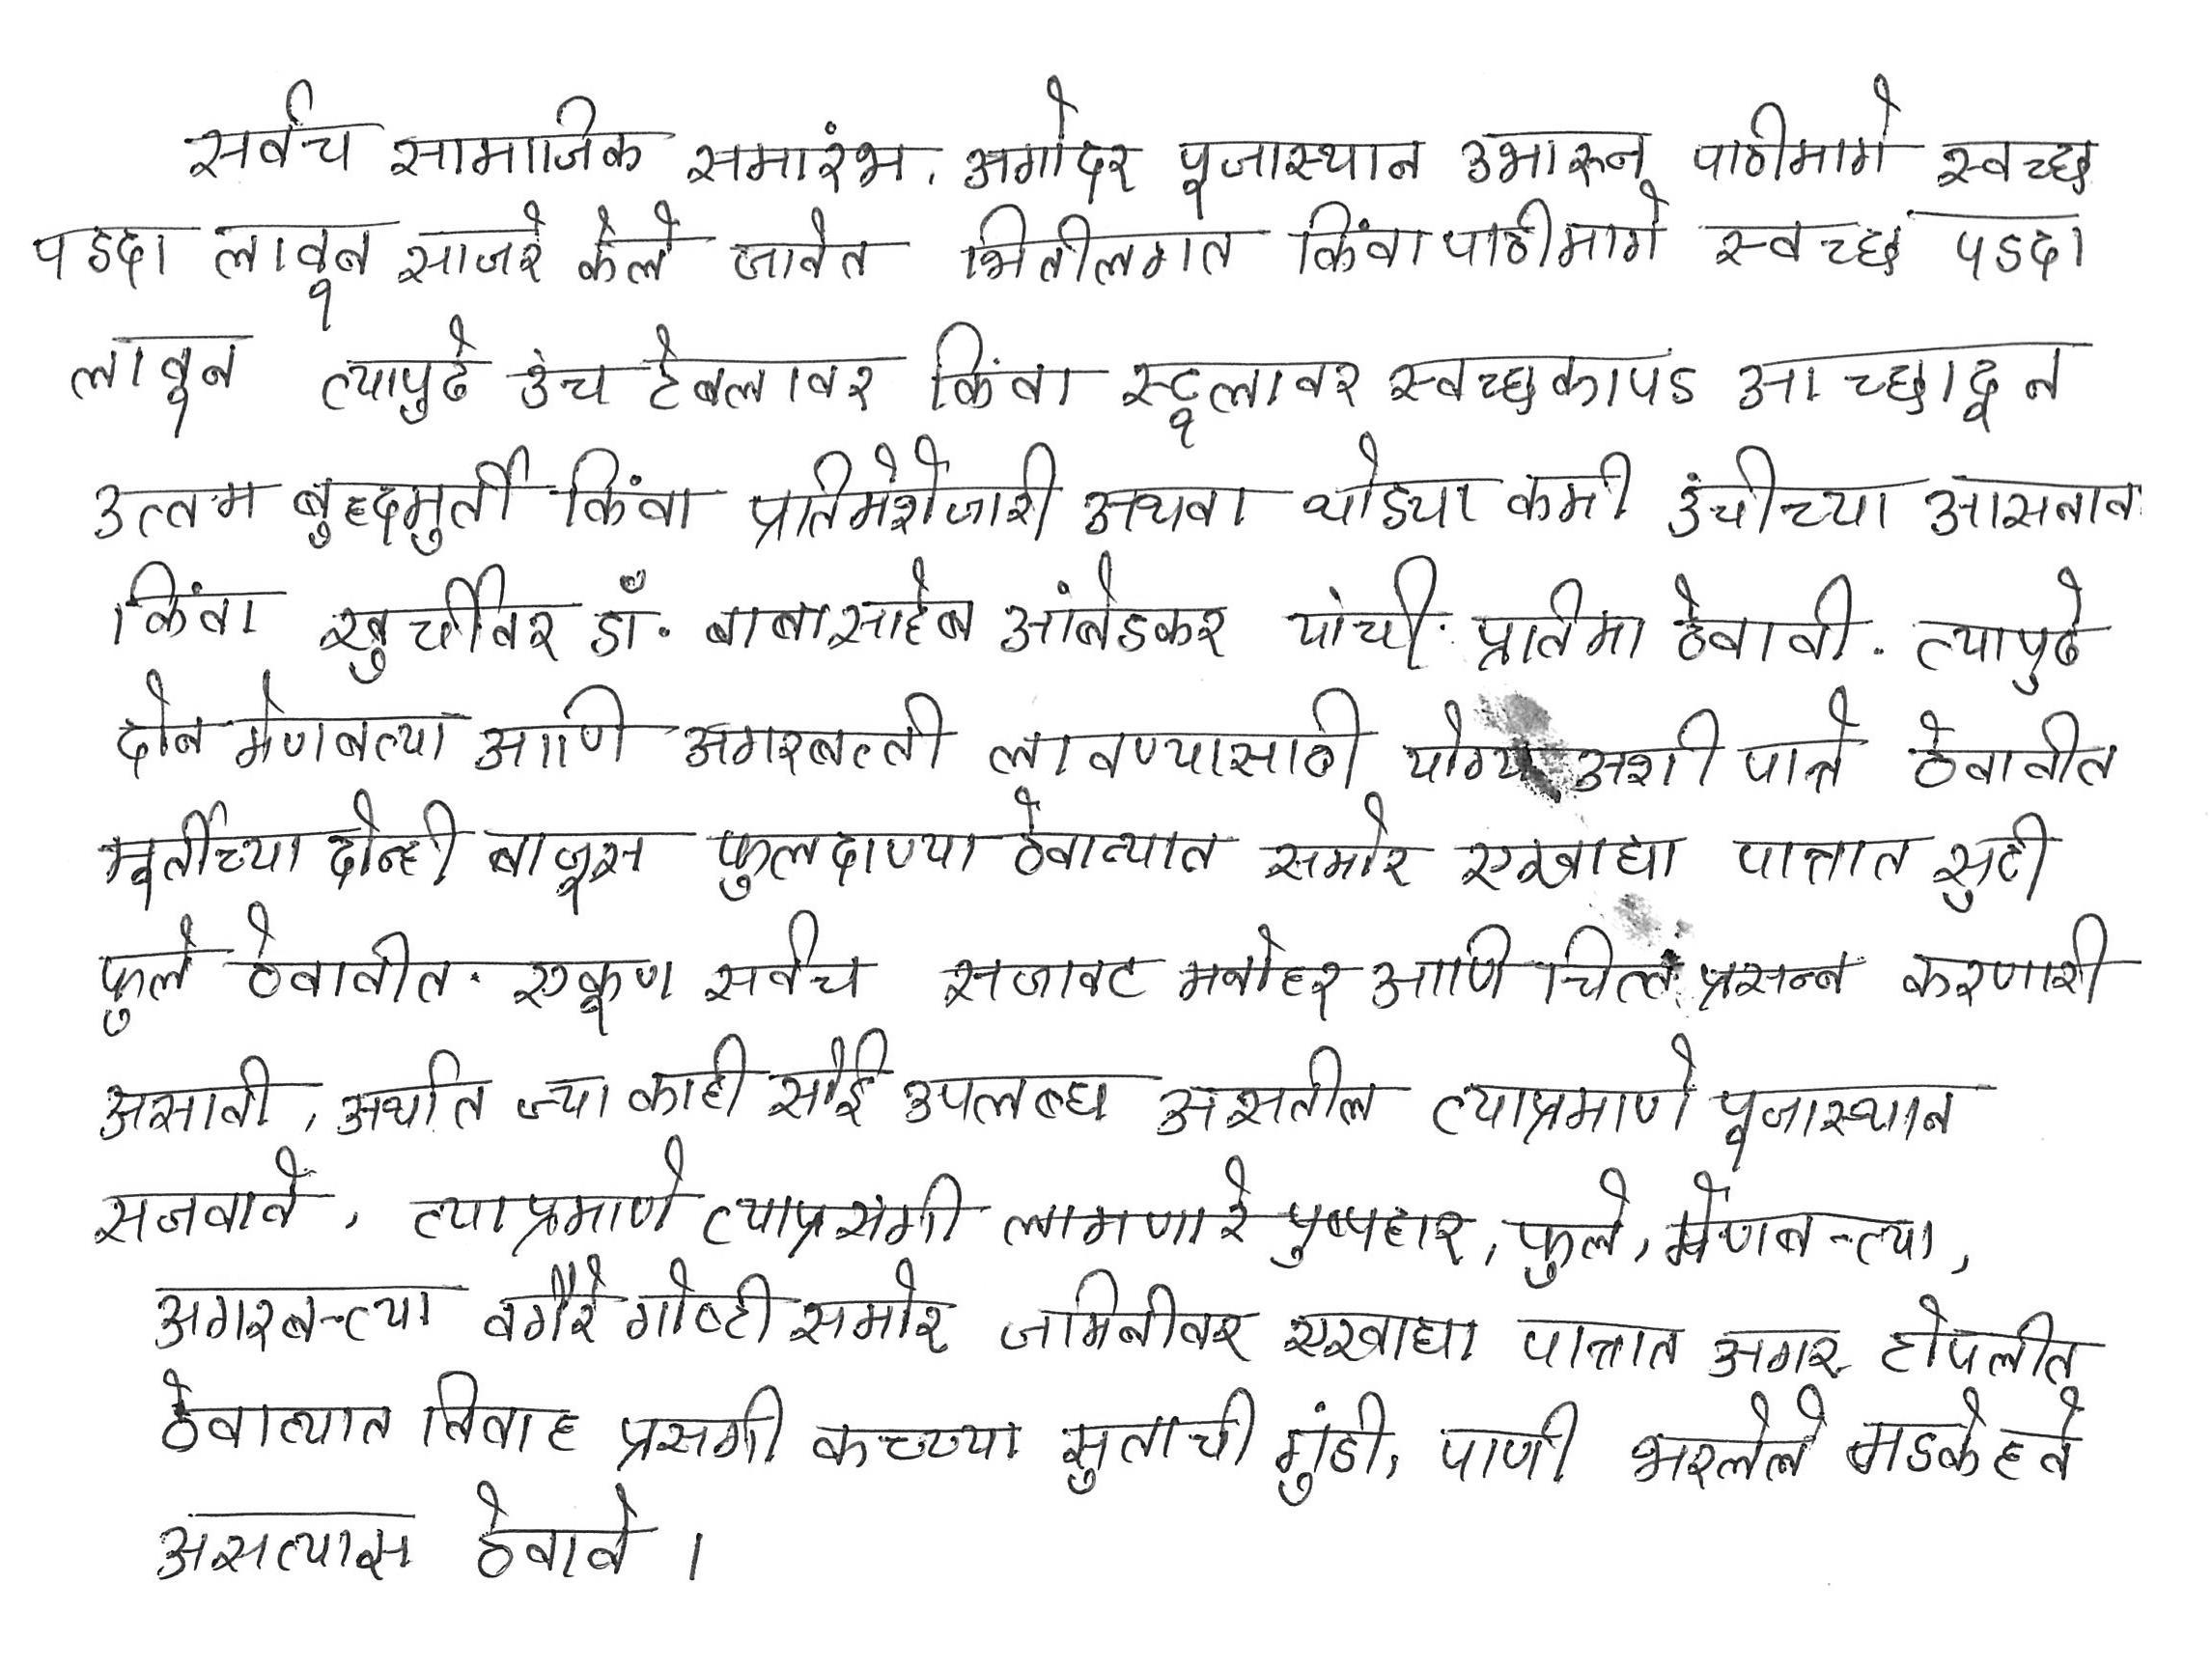 सर्वच सामाजिक समारंभ, अगोदर पूजास्थान उभारून पाठीमागे स्वच्छ
पडदा लावून साजरे केले जावेत भितीलगत किंवा पाठीमागे स्वच्छ पडदा
लावून त्यापुढे उंच टेबलावर किंवा स्टूलावर स्वच्छ कापड आच्छादून
उत्तम बुद्दमुर्ती किंवा प्रतिमेशेजारी अथवा थोड्या कमी उंचीच्या आसनाव
किंवा खुर्चीवर डॉ. बाबासाहेब आंबेडकर यांची प्रतिमा ठेवावी. त्यापुढे
दोन मेणबत्या आणि अगरबत्ती लावण्यासाठी योग्य अशी पात्रे ठेवावीत
मूर्तीच्या दोन्ही बाजूस फुलदाण्या ठेवाव्यात समोर एखाद्या पात्रात सुटी
फुले ठेवावीत. एकूण सर्वच सजावट मनोहर आणि चित्त प्रसन्न करणारी
असावी, अर्थात ज्या काही सोई उपलब्ध असतील त्याप्रमाणे पूजास्थान
सजवावे, त्याप्रमाणे त्याप्रसंगी लागणारे पुष्पहार, फुले, मेणबत्त्या,
अगरबत्त्या वगैरे गोष्टी समोर जमिनीवर एखाद्या पात्रात अगर टोपलीत
ठेवाव्यात विवाह प्रसगी कच्च्या सुताची गुंडी, पाणी भरलेले मडके हवे
असल्यास ठेवावे।